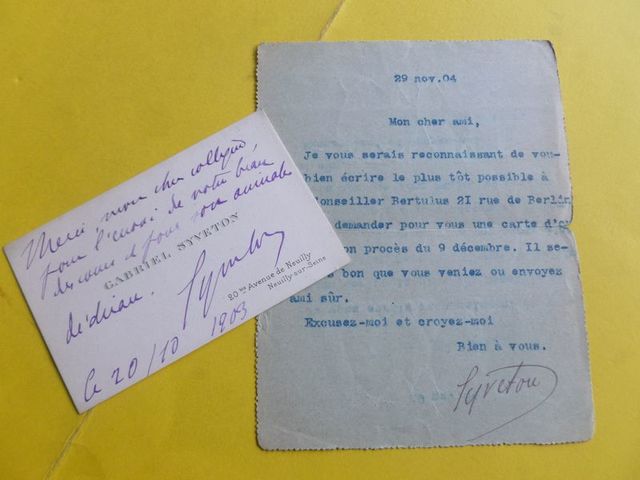 Merci, mon cher collègue,
pour l'envoi de votre beau
discours et pour son aimable
dédicace.
GABRIEL SYVETON
Syveton
20 bis Avenue de Neuilly
Neuilly-sur-Seine
le 20/10 1903
29 nov.04
Mon cher ami,
Je vous serais reconnaissant de vou-
bien écrire le plus tôt possible à
onseiller Bertulus 21 rue de Berlin
demander pour vous une carte d'e
on procès du 9 décembre. Il se-
bon que vous veniez ou envoyez
ami sûr.
Excusez-moi et croyez-moi
Bien à vous.
Syveton